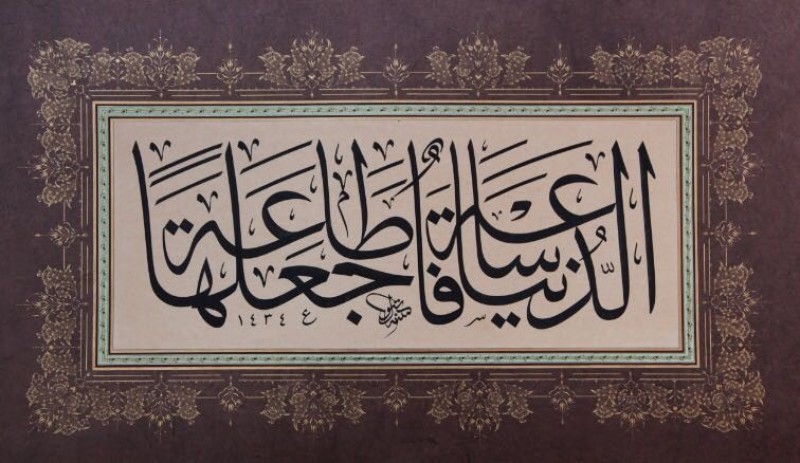 الدُّنيا ساعة فاجعلها طاعةً
١٤٣٤